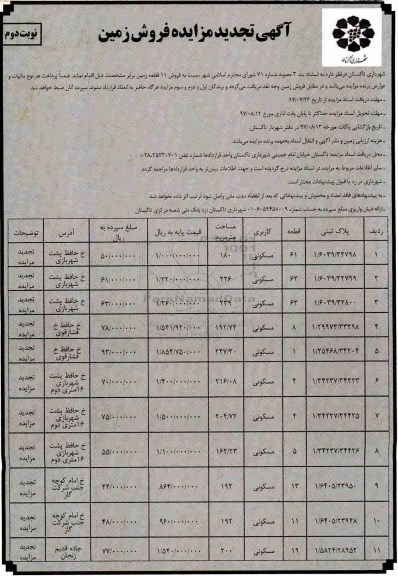 آگهی تجدید مزایده فروش زمین
نوبت دوم
شهرداری تاکستان درنظر دارد به استناد بند ۳ مصوبه شماره ۷۱ شورای محترم اسلامی شهر نسبت به فروش ۱۱ قطعه زمین برابر مشخصات ذیل اقدام نماید. ضمناً پرداخت هر نوع مالیات و
عوارض برنده مزایده می‌باشد و در مقابل فروش زمین وجه نقد دریافت می‌گردد و برندگان اول و دوم و سوم مزایده هرگاه حاضر به انعقاد قرارداد نشوند سپرده آنان ضبط خواهد شد.
- مهلت دریافت اسناد مزایده از تاریخ ۹۷/۰۷/۲۶
- مهلت تحویل اسناد مزایده حداکثر تا پایان وقت اداری مورخ ۹۷/۰۸/۱۲
- تاریخ بازگشایی پاکات مورخه ۹۷/۰۸/۱۳ در دفتر شهردار تاکستان
- هزینه ارزیابی زمین و نشر آگهی و انتقال اسناد به‌عهده برنده مزایده می‌باشد
- محل دریافت اسناد مزایده: تاکستان خیابان امام خمینی شهرداری تاکستان واحد قراردادها شماره تلفن: ۰۲۸-۳۵۲۳۰۷۰۱
- سایر اطلاعات مربوط به مزایده در اسناد مزایده درج گردیده است و جهت اطلاعات بیش‌تر به واحد قراردادها مراجعه گردد
- شهرداری در رد یا قبول پیشنهادات مختار است.
- به پیشنهادهای فاقد امضاء و مخدوش و پیشنهاداتی که بعد از انقضاء مدت مقرر واصل شود ترتیب اثر داده نخواهد شد.
ردیف پلاک ثبتی قطعه کاربری مساحت مترمربع قیمت پایه به ریال مبلغ سپرده به ریال آدرس توضیحات
۱ ۱/۶۰۳۹/۳۲۷۹۸ ۶۱ مسکونی ۱۸۰ ۱/۰۰۰/۰۰۰/۰۰۰ ۵۰/۰۰۰/۰۰۰ خ حافظ پشت شهربازی تجدید مزایده
۲ ۱/۶۰۳۹/۳۲۷۹۹ ۶۲ مسکونی ۲۲۶ ۱/۲۲۰/۰۰۰/۰۰۰ ۶۱/۰۰۰/۰۰۰ خ حافظ پشت شهربازی تجدید مزایده
۳ ۱/۶۰۳۹/۳۲۸۰۰ ۶۳ مسکونی ۲۳۹ ۱/۲۶۰/۰۰۰/۰۰۰ ۶۳/۰۰۰/۰۰۰ خ حافظ پشت شهربازی تجدید مزایده
۴ ۱/۲۹۹۷۳/۳۳۲۹۸ ۸ مسکونی ۱۹۲/۷۴ ۱/۵۴۱/۹۲۰/۰۰۰ ۷۸/۰۰۰/۰۰۰ خ حافظ خ فشارقوی تجدید مزایده
۵ ۱/۲۵۴۶۸/۳۴۲۰۴ ۱ مسکونی ۲۴۷/۳۰ ۱/۸۵۴/۷۵۰/۰۰۰ ۹۳/۰۰۰/۰۰۰ خ حافظ خ فشارقوی تجدید مزایده
۶ ۱/۳۴۲۳۷/۳۴۴۲۳ ۲ مسکونی ۲۱۶/۰۸ ۱/۴۰۰/۰۰۰/۰۰۰ ۷۰/۰۰۰/۰۰۰ خ حافظ پشت شهربازی ۱۶متری دوم تجدید مزایده
۷ ۱/۳۴۲۳۷/۳۴۴۲۵ ۴ مسکونی ۲۰۴/۷۲ ۱/۵۰۰/۰۰۰/۰۰۰ ۷۵/۰۰۰/۰۰۰ خ حافظ پشت شهربازی ۱۶متری دوم تجدید مزایده
۸ ۱/۳۴۲۳۷/۳۴۴۲۶ ۵ مسکونی ۱۶۲/۲۳ ۱/۱۰۰/۰۰۰/۰۰۰ ۵۵/۰۰۰/۰۰۰ خ حافظ پشت شهربازی ۱۶متری دوم تجدید مزایده
۹ ۱/۶۴۰۵/۲۳۹۵۰ ۱۳ مسکونی ۱۹۲ ۸۶۴/۰۰۰/۰۰۰ ۴۴/۰۰۰/۰۰۰ خ امام کوچه جنب شرکت گاز تجدید مزایده
۱۰ ۱/۶۴۰۵/۲۳۹۴۸ ۱۱ مسکونی ۱۹۲ ۹۶۰/۰۰۰/۰۰۰ ۴۸/۰۰۰/۰۰۰ خ امام کوچه جنب شرکت گاز تجدید مزایده
۱۱ ۱/۵۸۲۴/۲۸۹۵۲ ۱۹ مسکونی ۲۰۰ ۱/۵۴۰/۰۰۰/۰۰۰ ۷۷/۰۰۰/۰۰۰ جاده قدیم زنجان تجدید مزایده